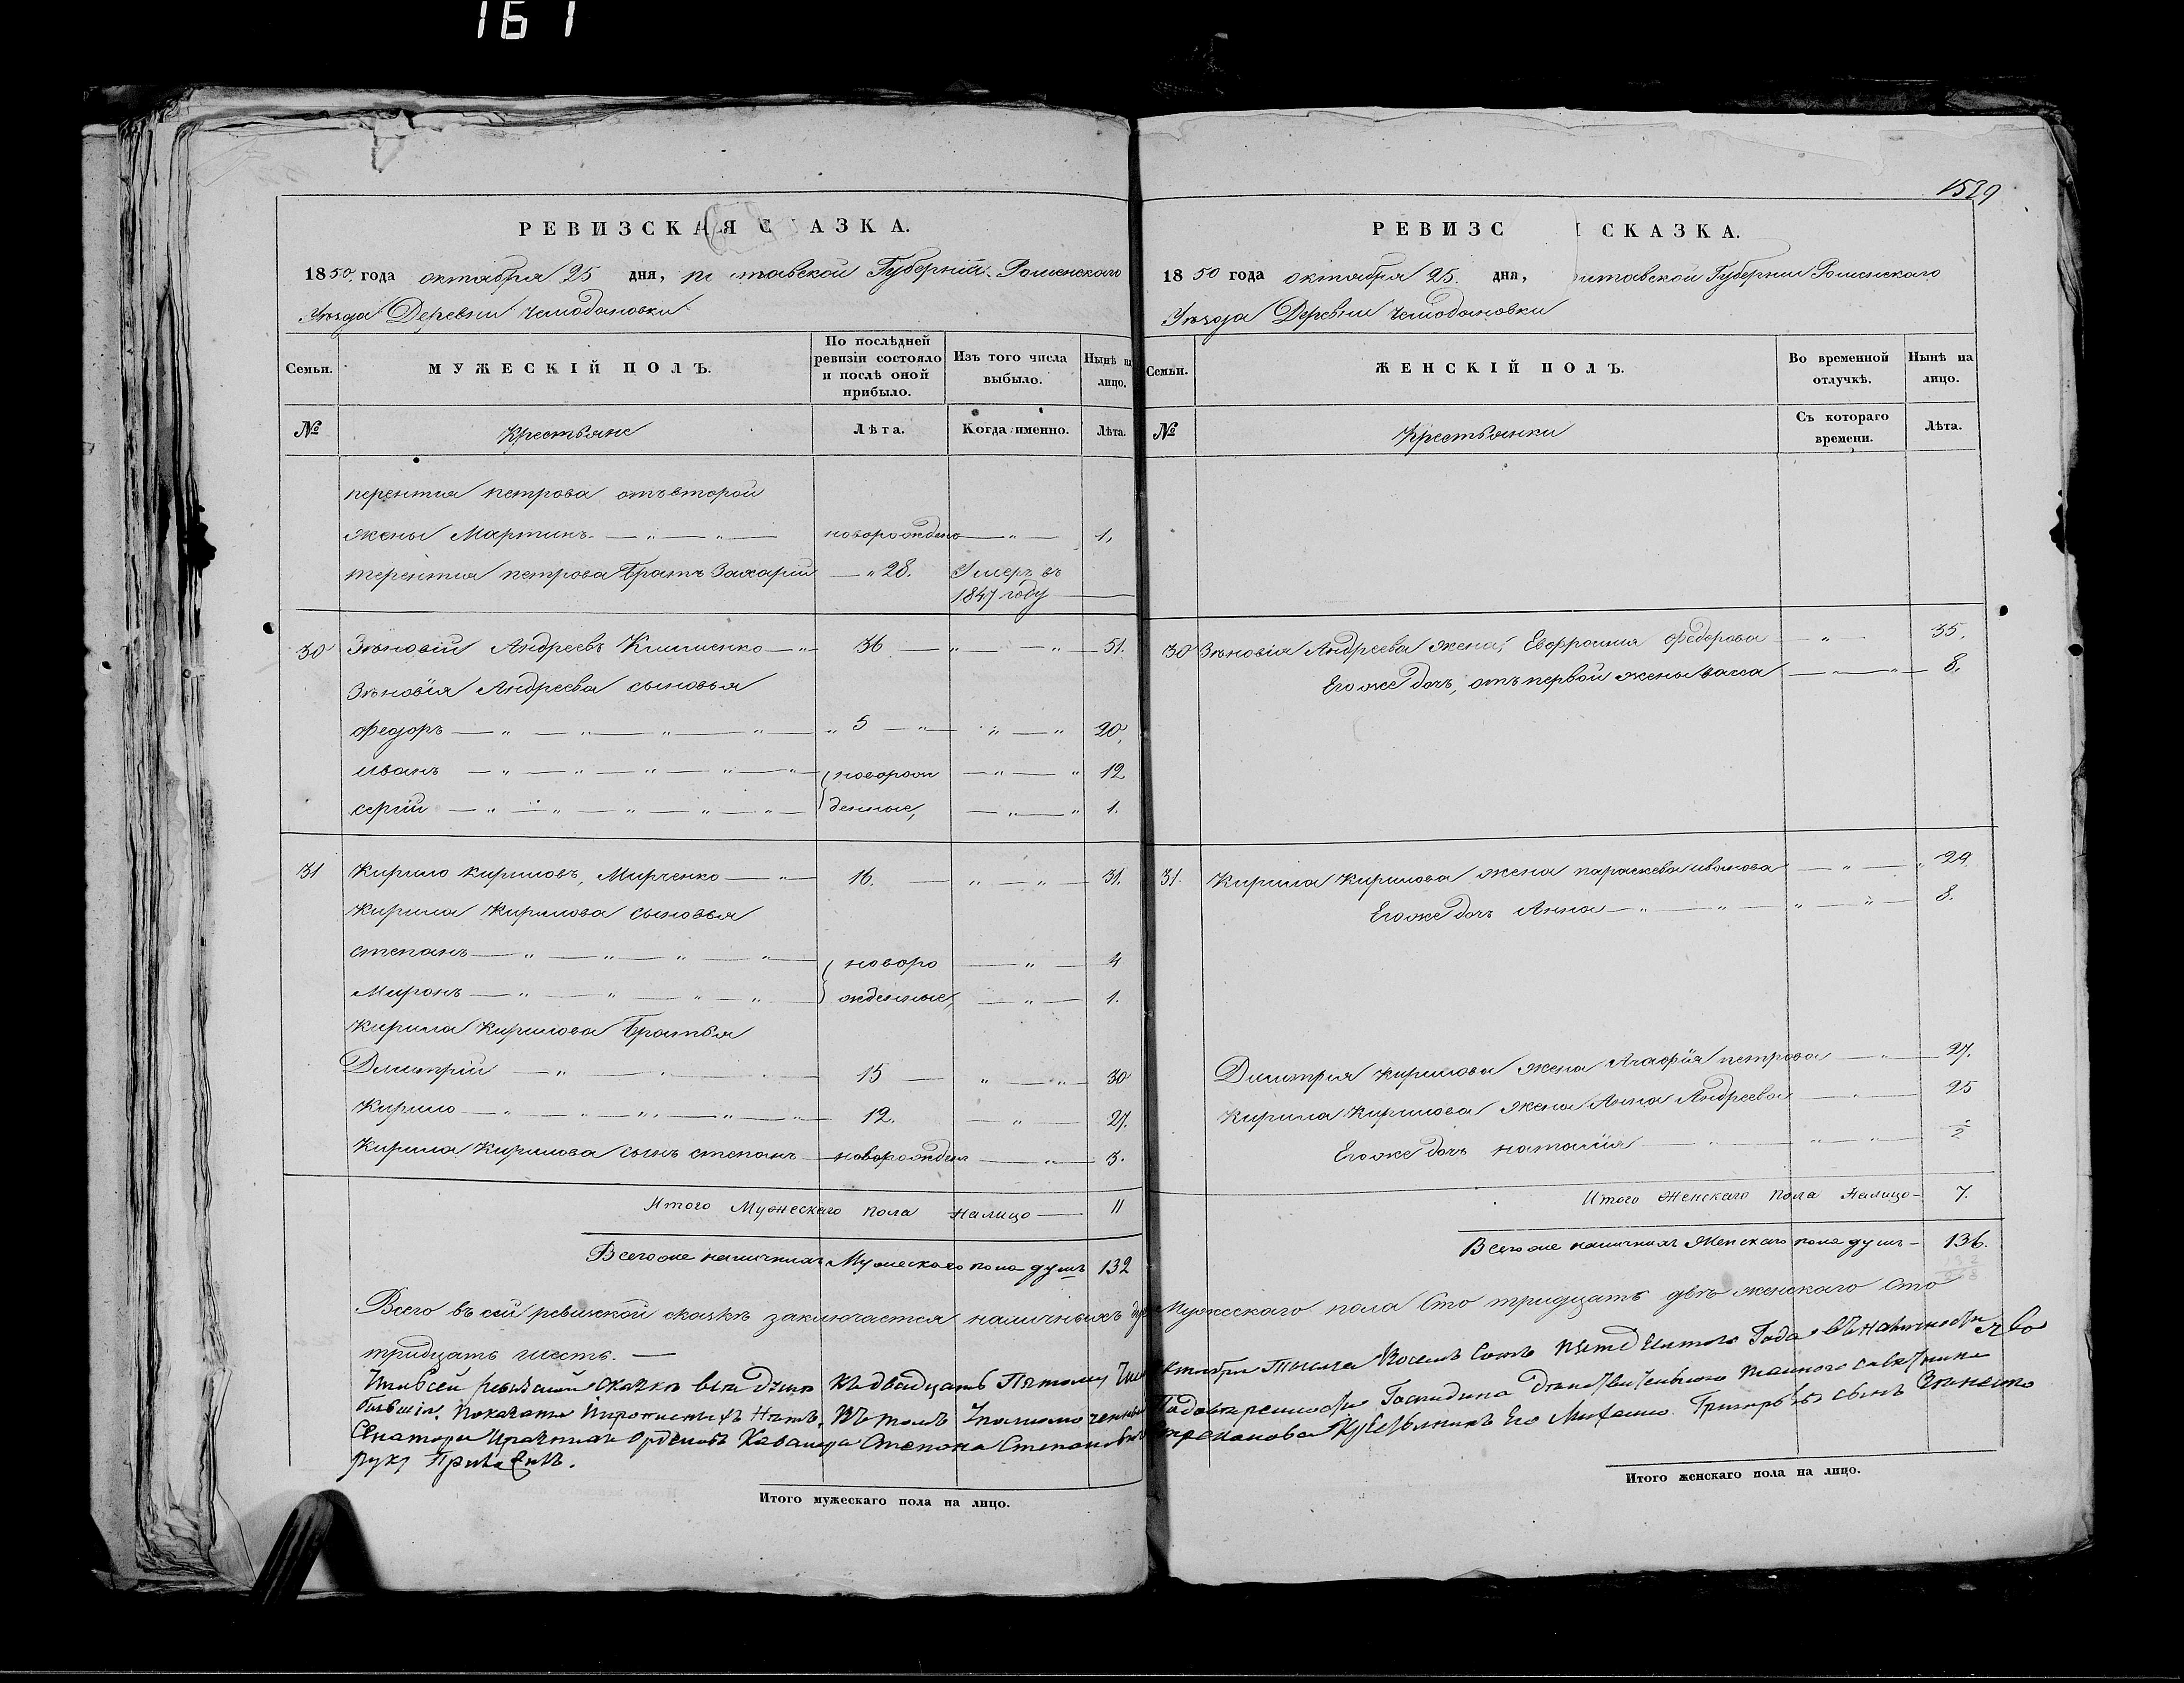 161
РЕВИЗСКАЯ С АЗКА.
1850 года октября 25 дня, по тавской Губерніи Роменскаго
Уѣзда Деревни Чемодановки
Семьи. МУЖЕСКІЙ ПОЛЪ. По послѣдней ревизіи состояло и послѣ оной прибыло. Изъ того числа выбыло. Нынѣ на лицо.
№ Крестьяне Лѣта. Когда именно. Лѣта.
терентия петрова отъ второй
жены Мартинъ новорожденъ 1.
терентия петрова братъ Захарий 28. Умеръ въ
1847 году
30 Зѣновій Андреевъ Клименко 36 51.
Зѣновія Андреева сыновья
федоръ 5 20,
иванъ новорож 12
сергій денные, 1.
31 Кирило кириловъ, Мирченко 16. 31.
Кирила Кирилова сыновья
степанъ новоро 4
Миронъ жденные, 1.
Кирила Кирилова братья
Дмитрій 15 30
Кирило 12. 27.
Кирила Кирилова сынъ степанъ новорожденъ 3.
Итого Мужескаго пола налицо 11
Всего же наличныхъ Мужескаго пола душъ 132
1529
РЕВИЗС СКАЗКА.
1850 года октября 25. дня, лтавской Губернии Роменскаго
Уѣзда Деревни Чемодановки
Семьи. ЖЕНСКІЙ ПОЛЪ. Во временной отлучкѣ. Нынѣ на лицо.
№ Крестьянки Съ котораго времени. Лѣта.
30 Зѣновія Андреева жена, Евфросиния федорова 35.
Его же дочь, отъ первой жены васса 8.
31. Кирила Кирилова жена параскева иванова 29.
Его же дочь Анна 8.
Димитрия кирилова жена Агафія петрова 27.
Кирила Кирилова жена Анна Андреева 25
Его же дочь наталія 1/2
Итого Женскаго пола Налицо 7.
Всего же наличныхъ Женскаго пола душъ 136.
Всего въ сей ревизской сказкѣ заключается наличныхъ душъ Мужескаго пола Сто тридцать двѣ женскаго сто
тридцать шесть.
Что в сей ревизской сказкѣ къ двадцать Пятому Октября Тысяча Восемъ Сотъ Года в наличности
Показаны Нѣтъ, Въ томъ Господина Тайнаго
Сенатора Орденовъ Кавалера Степана Его сынъ
руку
Итого мужескаго пола на лицо.
Итого женскаго пола на лицо.